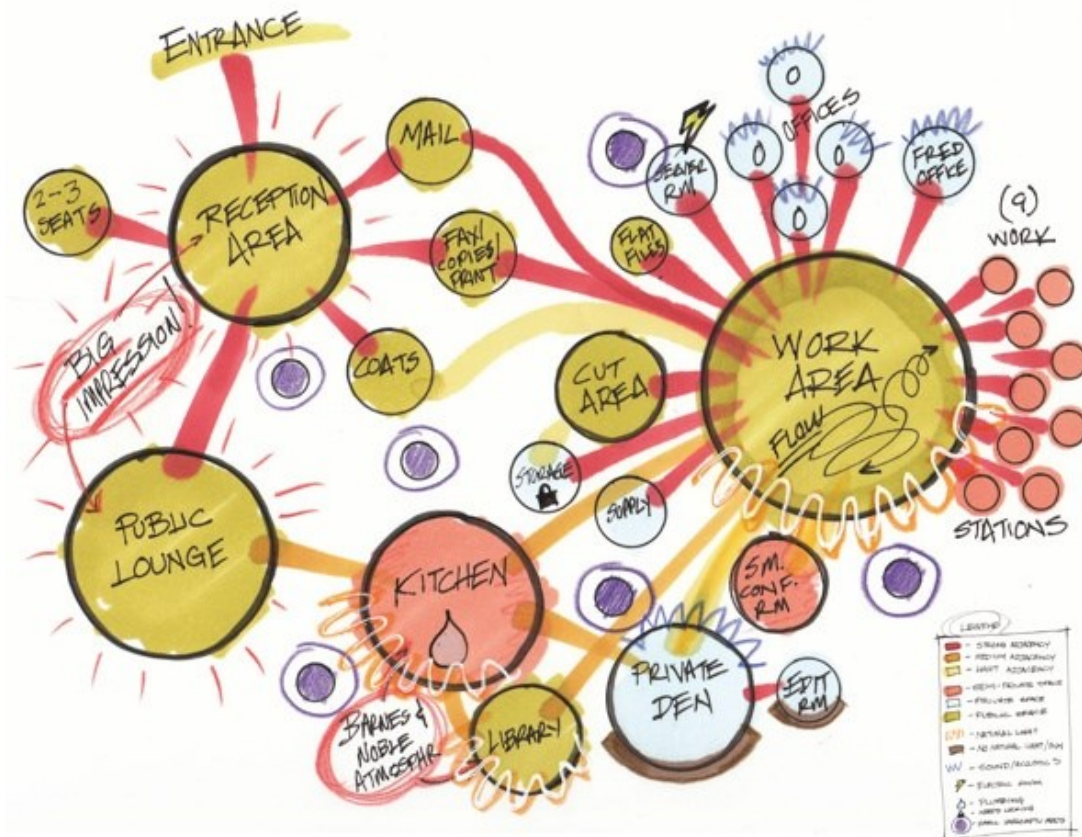 ENTRANCE
MAIL
2-3
SEATS
RECEPTION
AREA
FAX/
COPIES/
PRINT
COATS
BIG
IMPRESSION!
PUBLIC
LOUNGE
KITCHEN
BARNES &
NOBLE
ATMOSPHR
LIBRARY
STORAGE
SUPPLY
CUT
AREA
FLAT
FILES
SERVER
RM
OFFICES
O
O
O
O
FRED
OFFICE
(9)
WORK
STATIONS
WORK
AREA
FLOW
SM.
CONF.
RM
PRIVATE
DEN
EDIT
RM
LEGEND
- STRONG ADJACENCY
- MEDIUM ADJACENCY
- LIGHT ADJACENCY
- SEMI-PRIVATE SPACE
- PRIVATE SPACE
- PUBLIC SPACE
- NATURAL LIGHT
- NO NATURAL LIGHT/
- SOUND/ACOUSTIC'S
- ELECTRIC
- PLUMBING
- NEEDS LOCKING
- SMALL IMPROMPTU